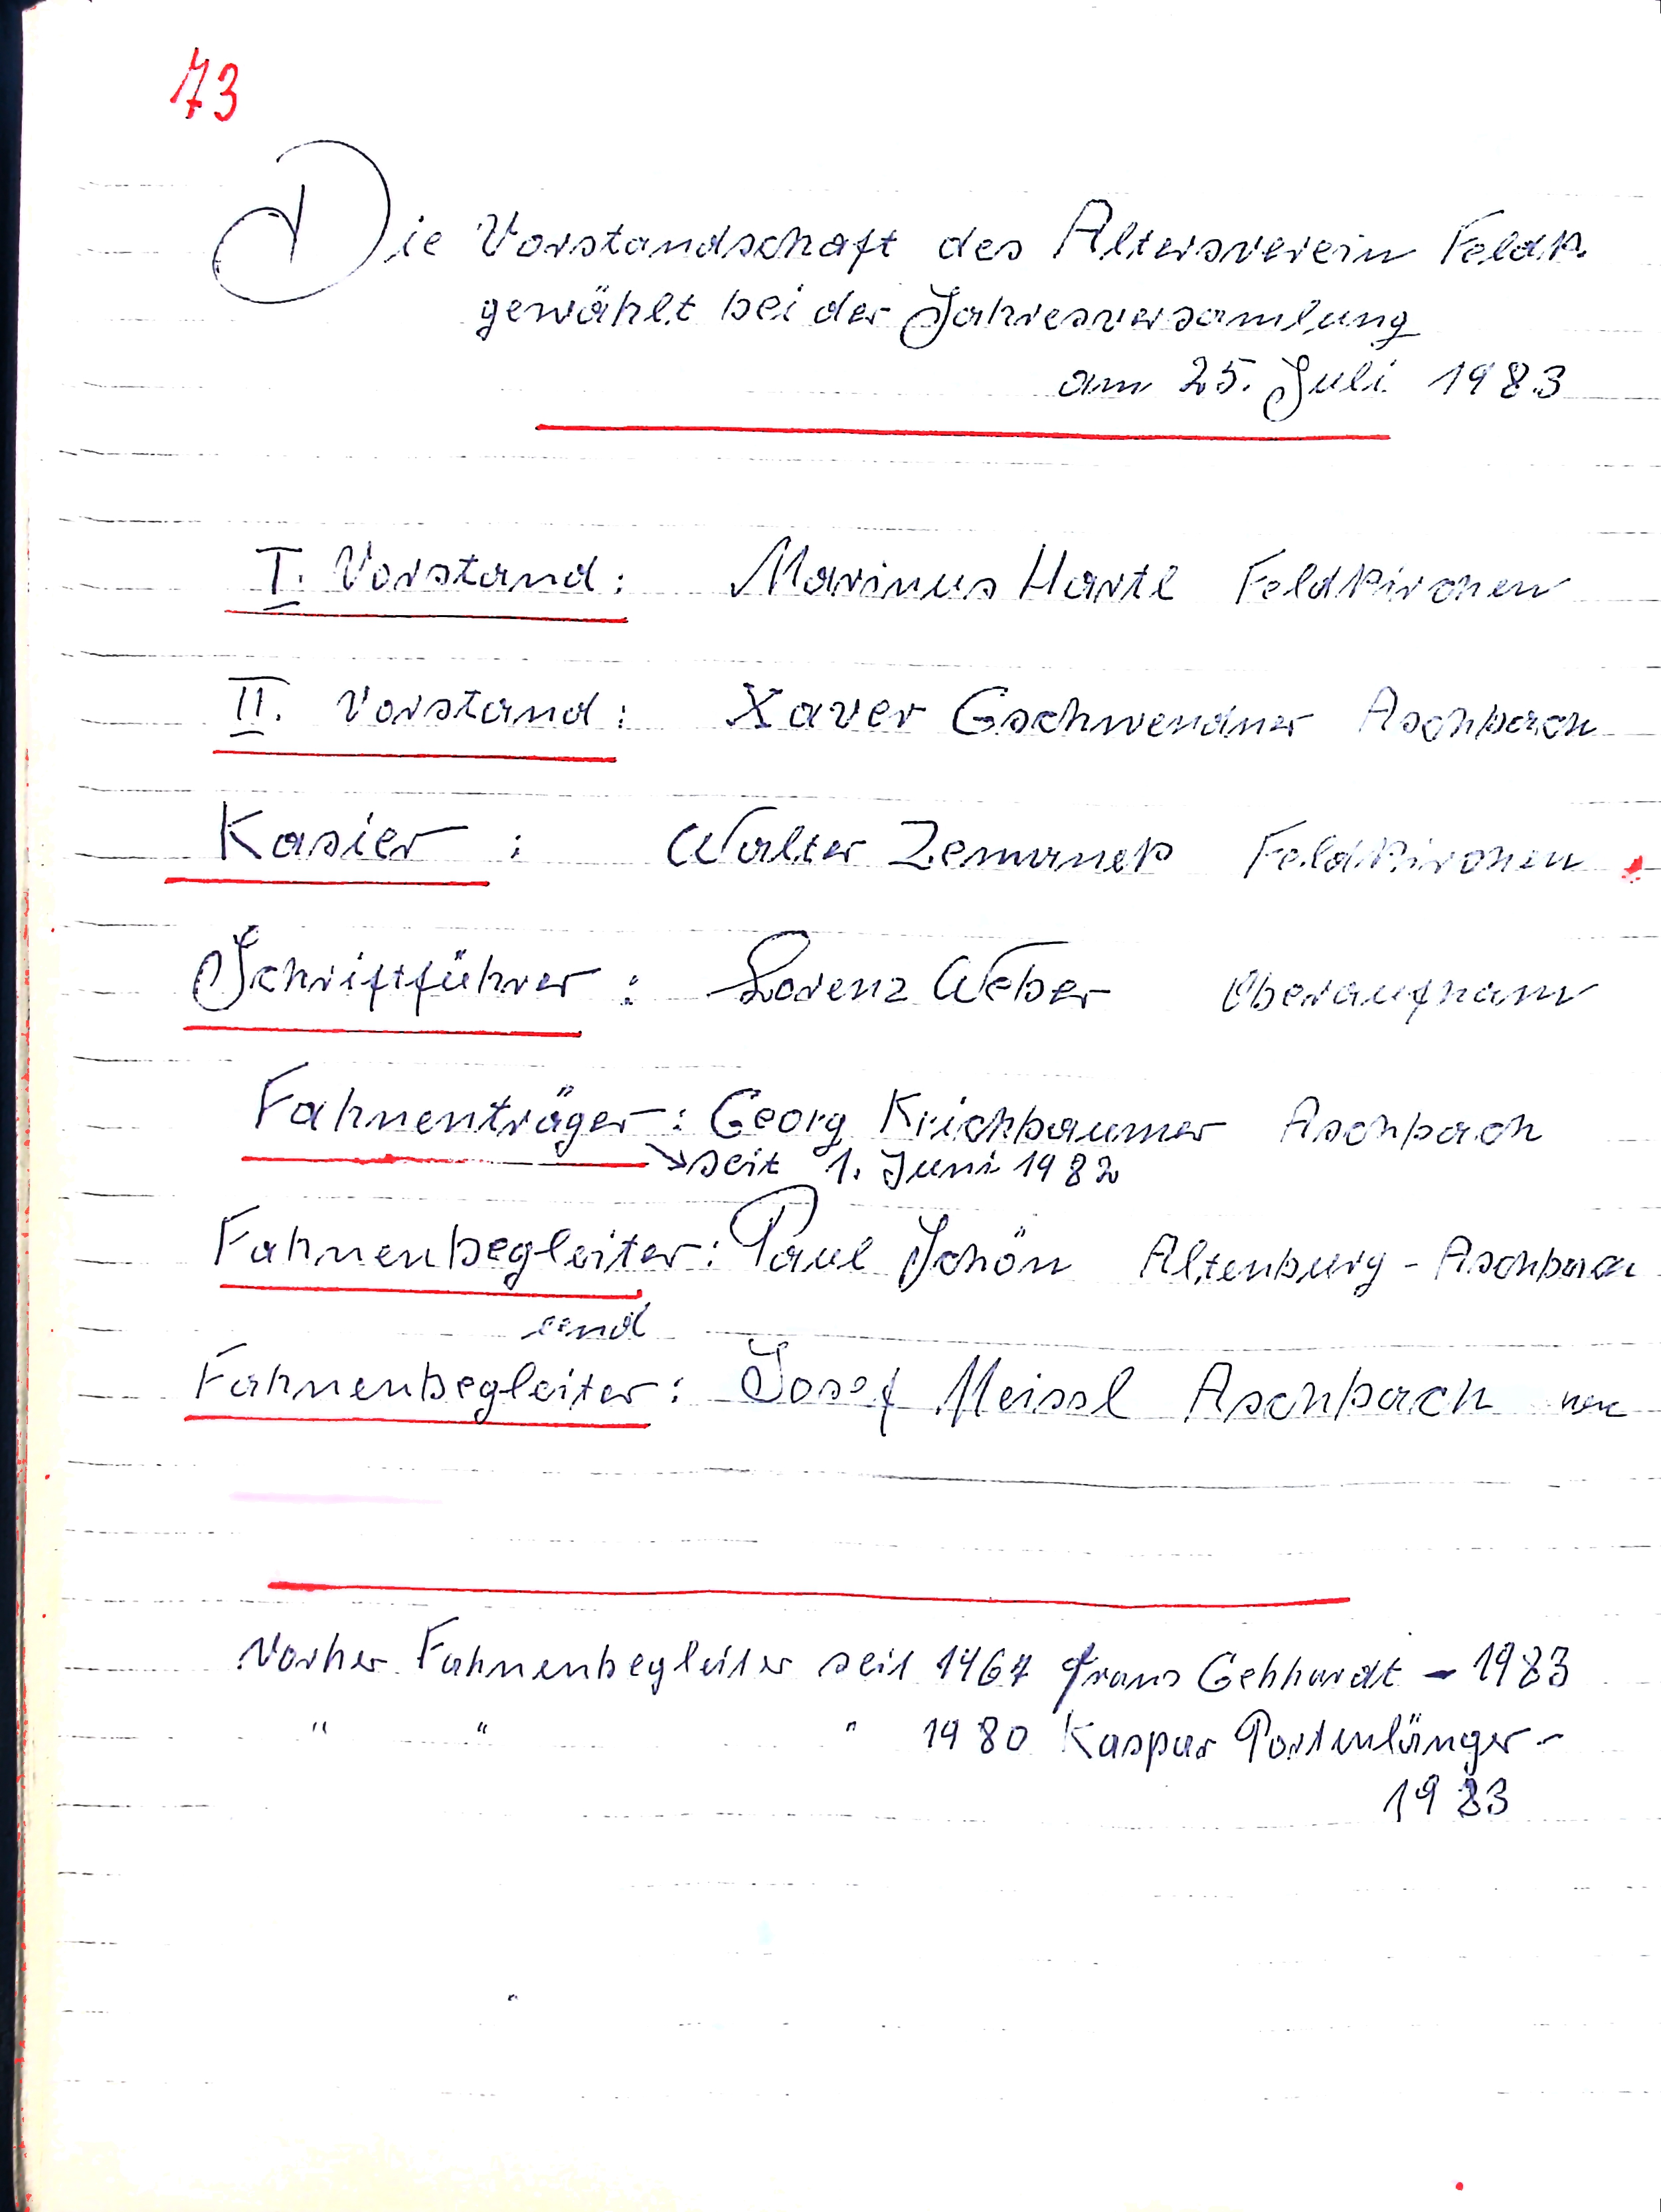 73
Die Vorstandschaft des Altersverein Feldk.
gewählt bei der Jahresversamlung
am 25. Juli 1983
I. Vorstand: Marinus Hartl Feldkirchen
II. Vorstand: Xaver Gschwendner Aschbach
Kasier : Walter Zemanek Feldkirchen
Schriftführer : Lorenz Weber Oberaufham
Fahnenträger: Georg Krichbaumer Aschbach
seit 1. Juni 1982
Fahnenbegleiter: Paul Schön Altenburg - Aschbach
und
Fahnenbegleiter: Josef Meissl Aschbach
Vorher Fahnenbegleiter seit 1967 Franz Gebhardt - 1983
" " " 1980 Kaspar Portenlänger -
1983